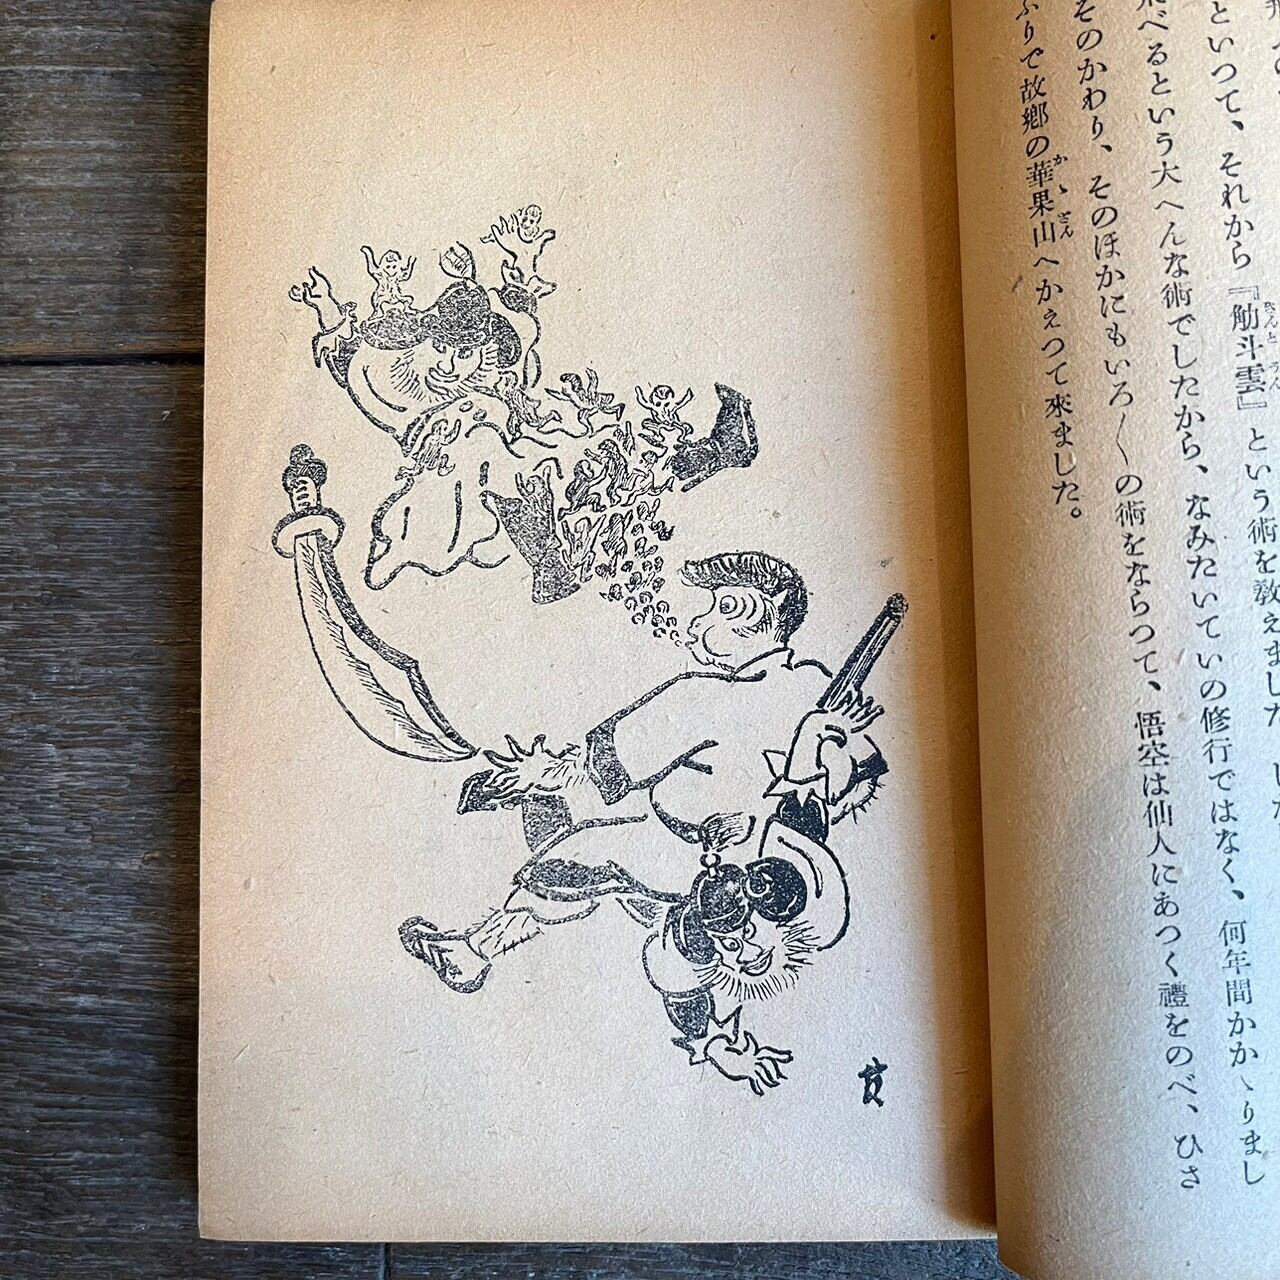 といつて、それから『觔斗雲』という術を教えました。
べるという大へんな術でしたから、なみたいていの修行ではなく、何年間かかゝりまし
そのかわり、そのほかにもいろ〳〵の術をならつて、悟空は仙人にあつく禮をのべ、ひさ
ふりで故郷の華果山へかえつて來ました。
かゝざん
きんとうん